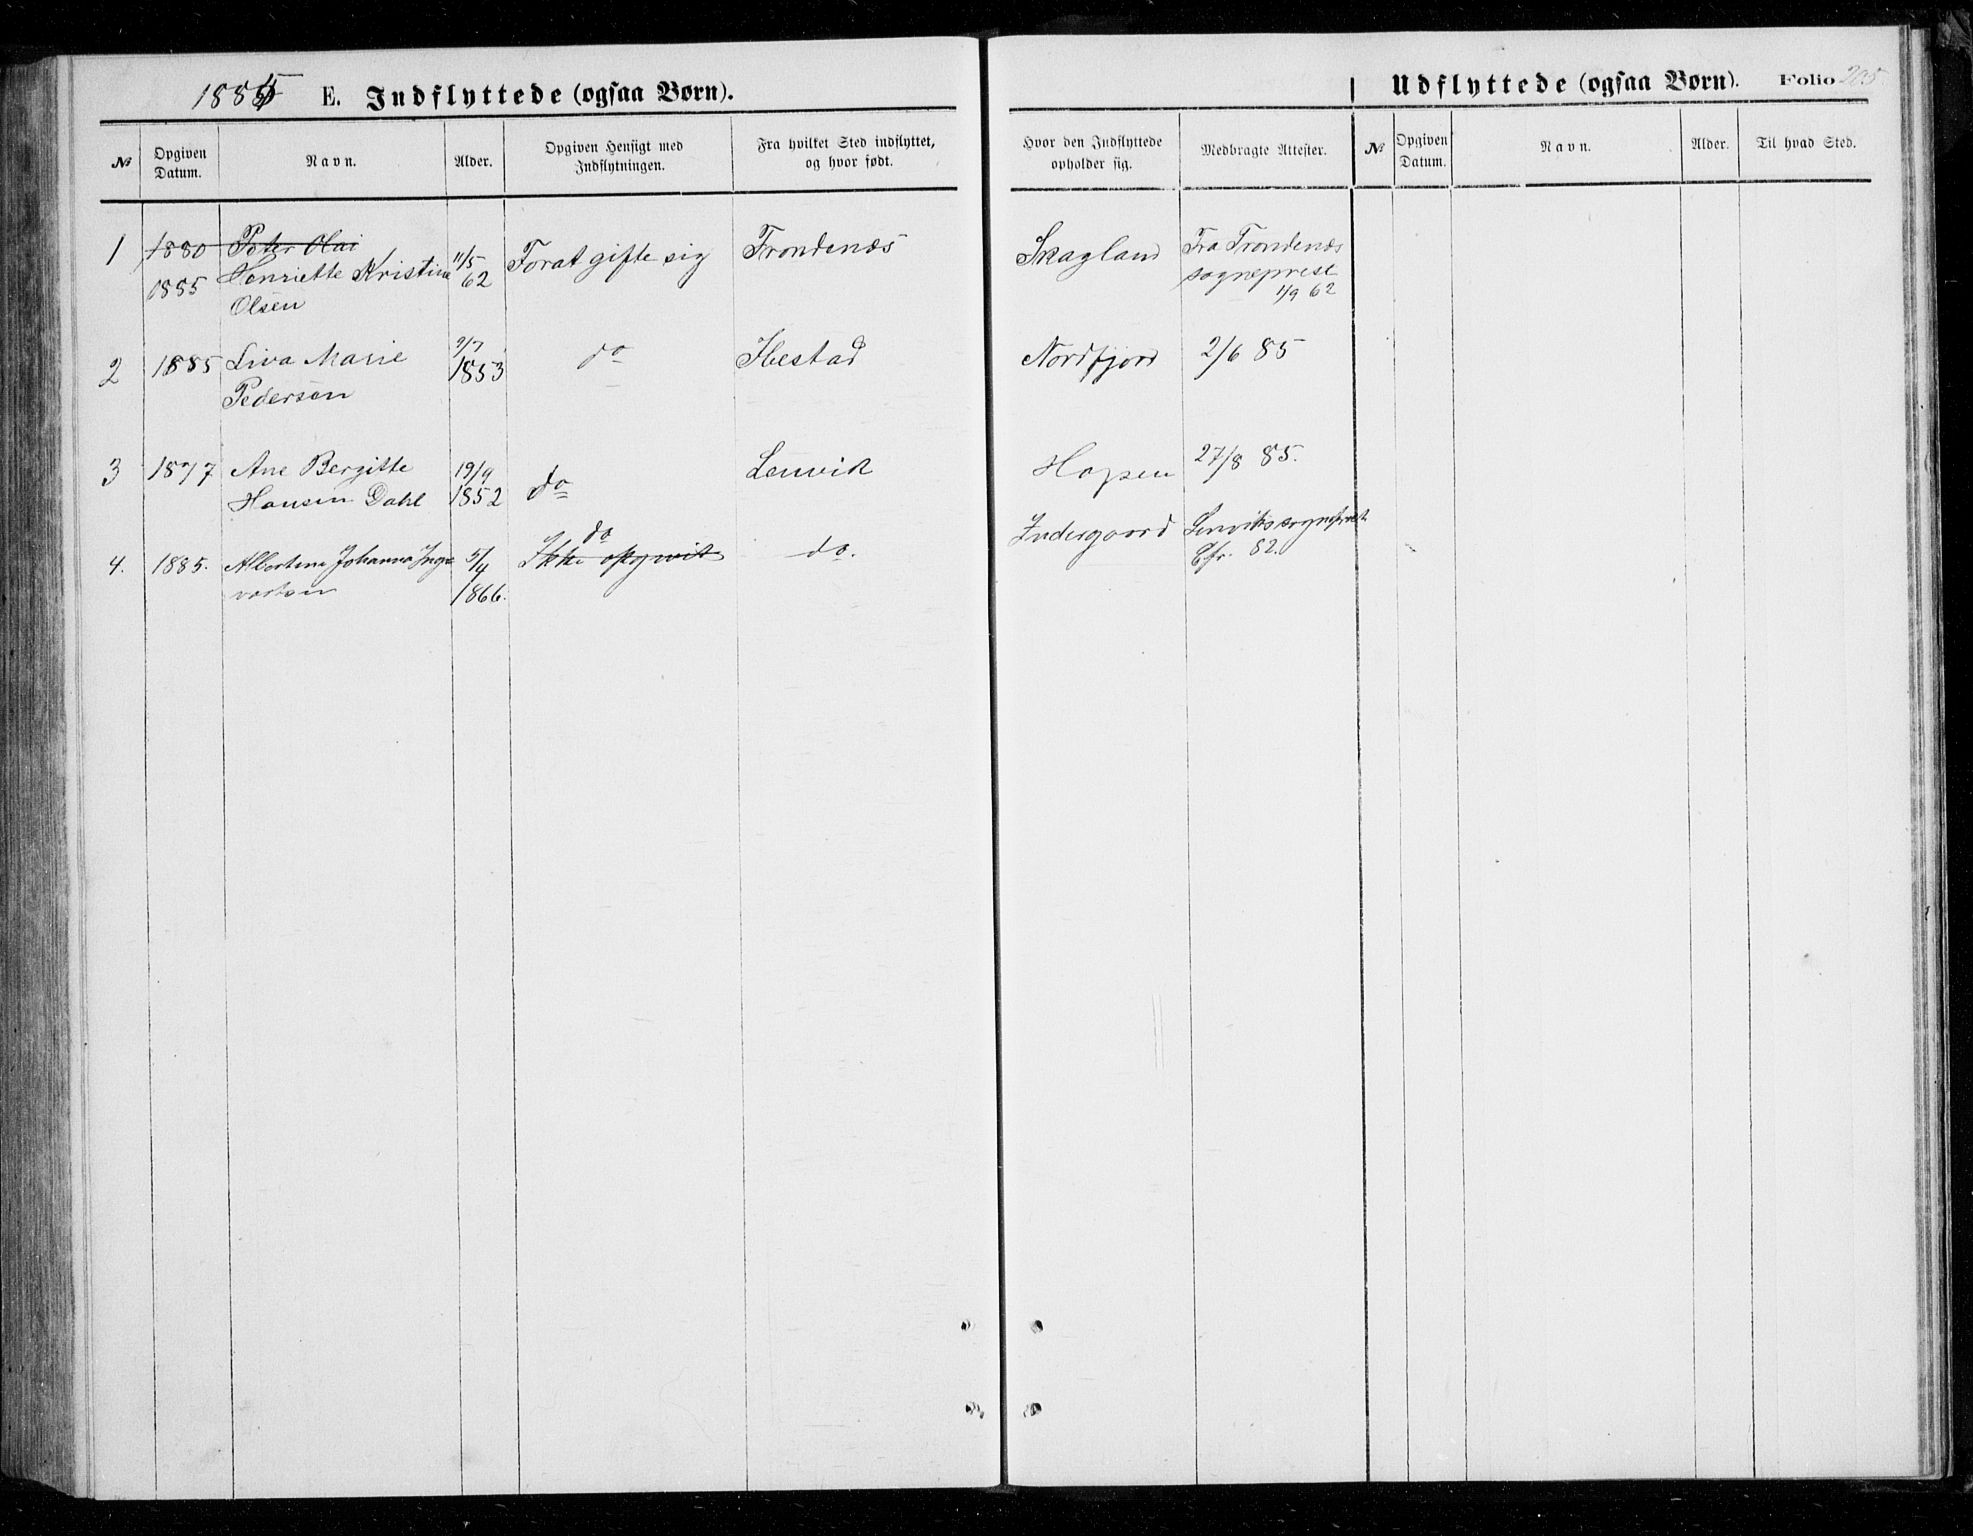 1885 E. Indflyttede (ogsaa Børn).
Udflyttede (ogsaa Børn). Folio 205
№ Opgiven Datum. Navn. Alder. Opgiven Hensigt med Indflytningen. Fra hvilket Sted indflyttet, og hvor født. Hvor den Indflyttede opholder sig. Medbragte Attester. № Opgiven Datum. Navn. Alder. Til hvad Sted.
1 1880 Peter Olai
1885 Henriette Kristine 11/5 62 For at gifte sig Trondenæs Skagland Fra Trondenæs
Olsen sogneprest
11/9 62
2 1885 Liva Marie 9/7 1853 do Ibestad Nordfjord 2/6 85
Pedersen
3 1877 Ane Bergitte 19/9 do Lenvik Hopsen 27/8 85.
Hansen Dahl 1852
4. 1885. Albertine Johanna Inge 5/4 do Ikke opgivit do. Indergaard Lenviks sogneprest
vartsen 1866. 82.